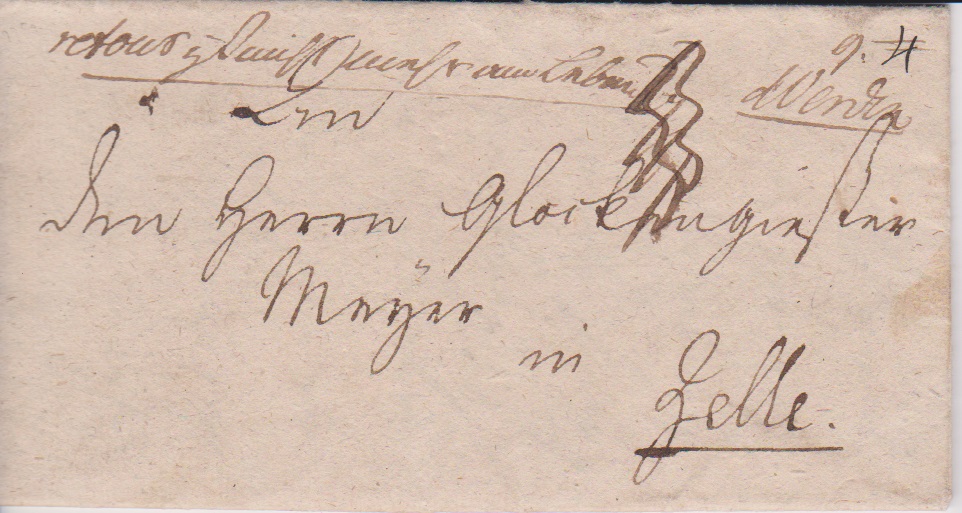 retour ist nicht mehr am Leben
9. 4
An
den Herrn Glockengießer
Meÿer
in
Zelle.